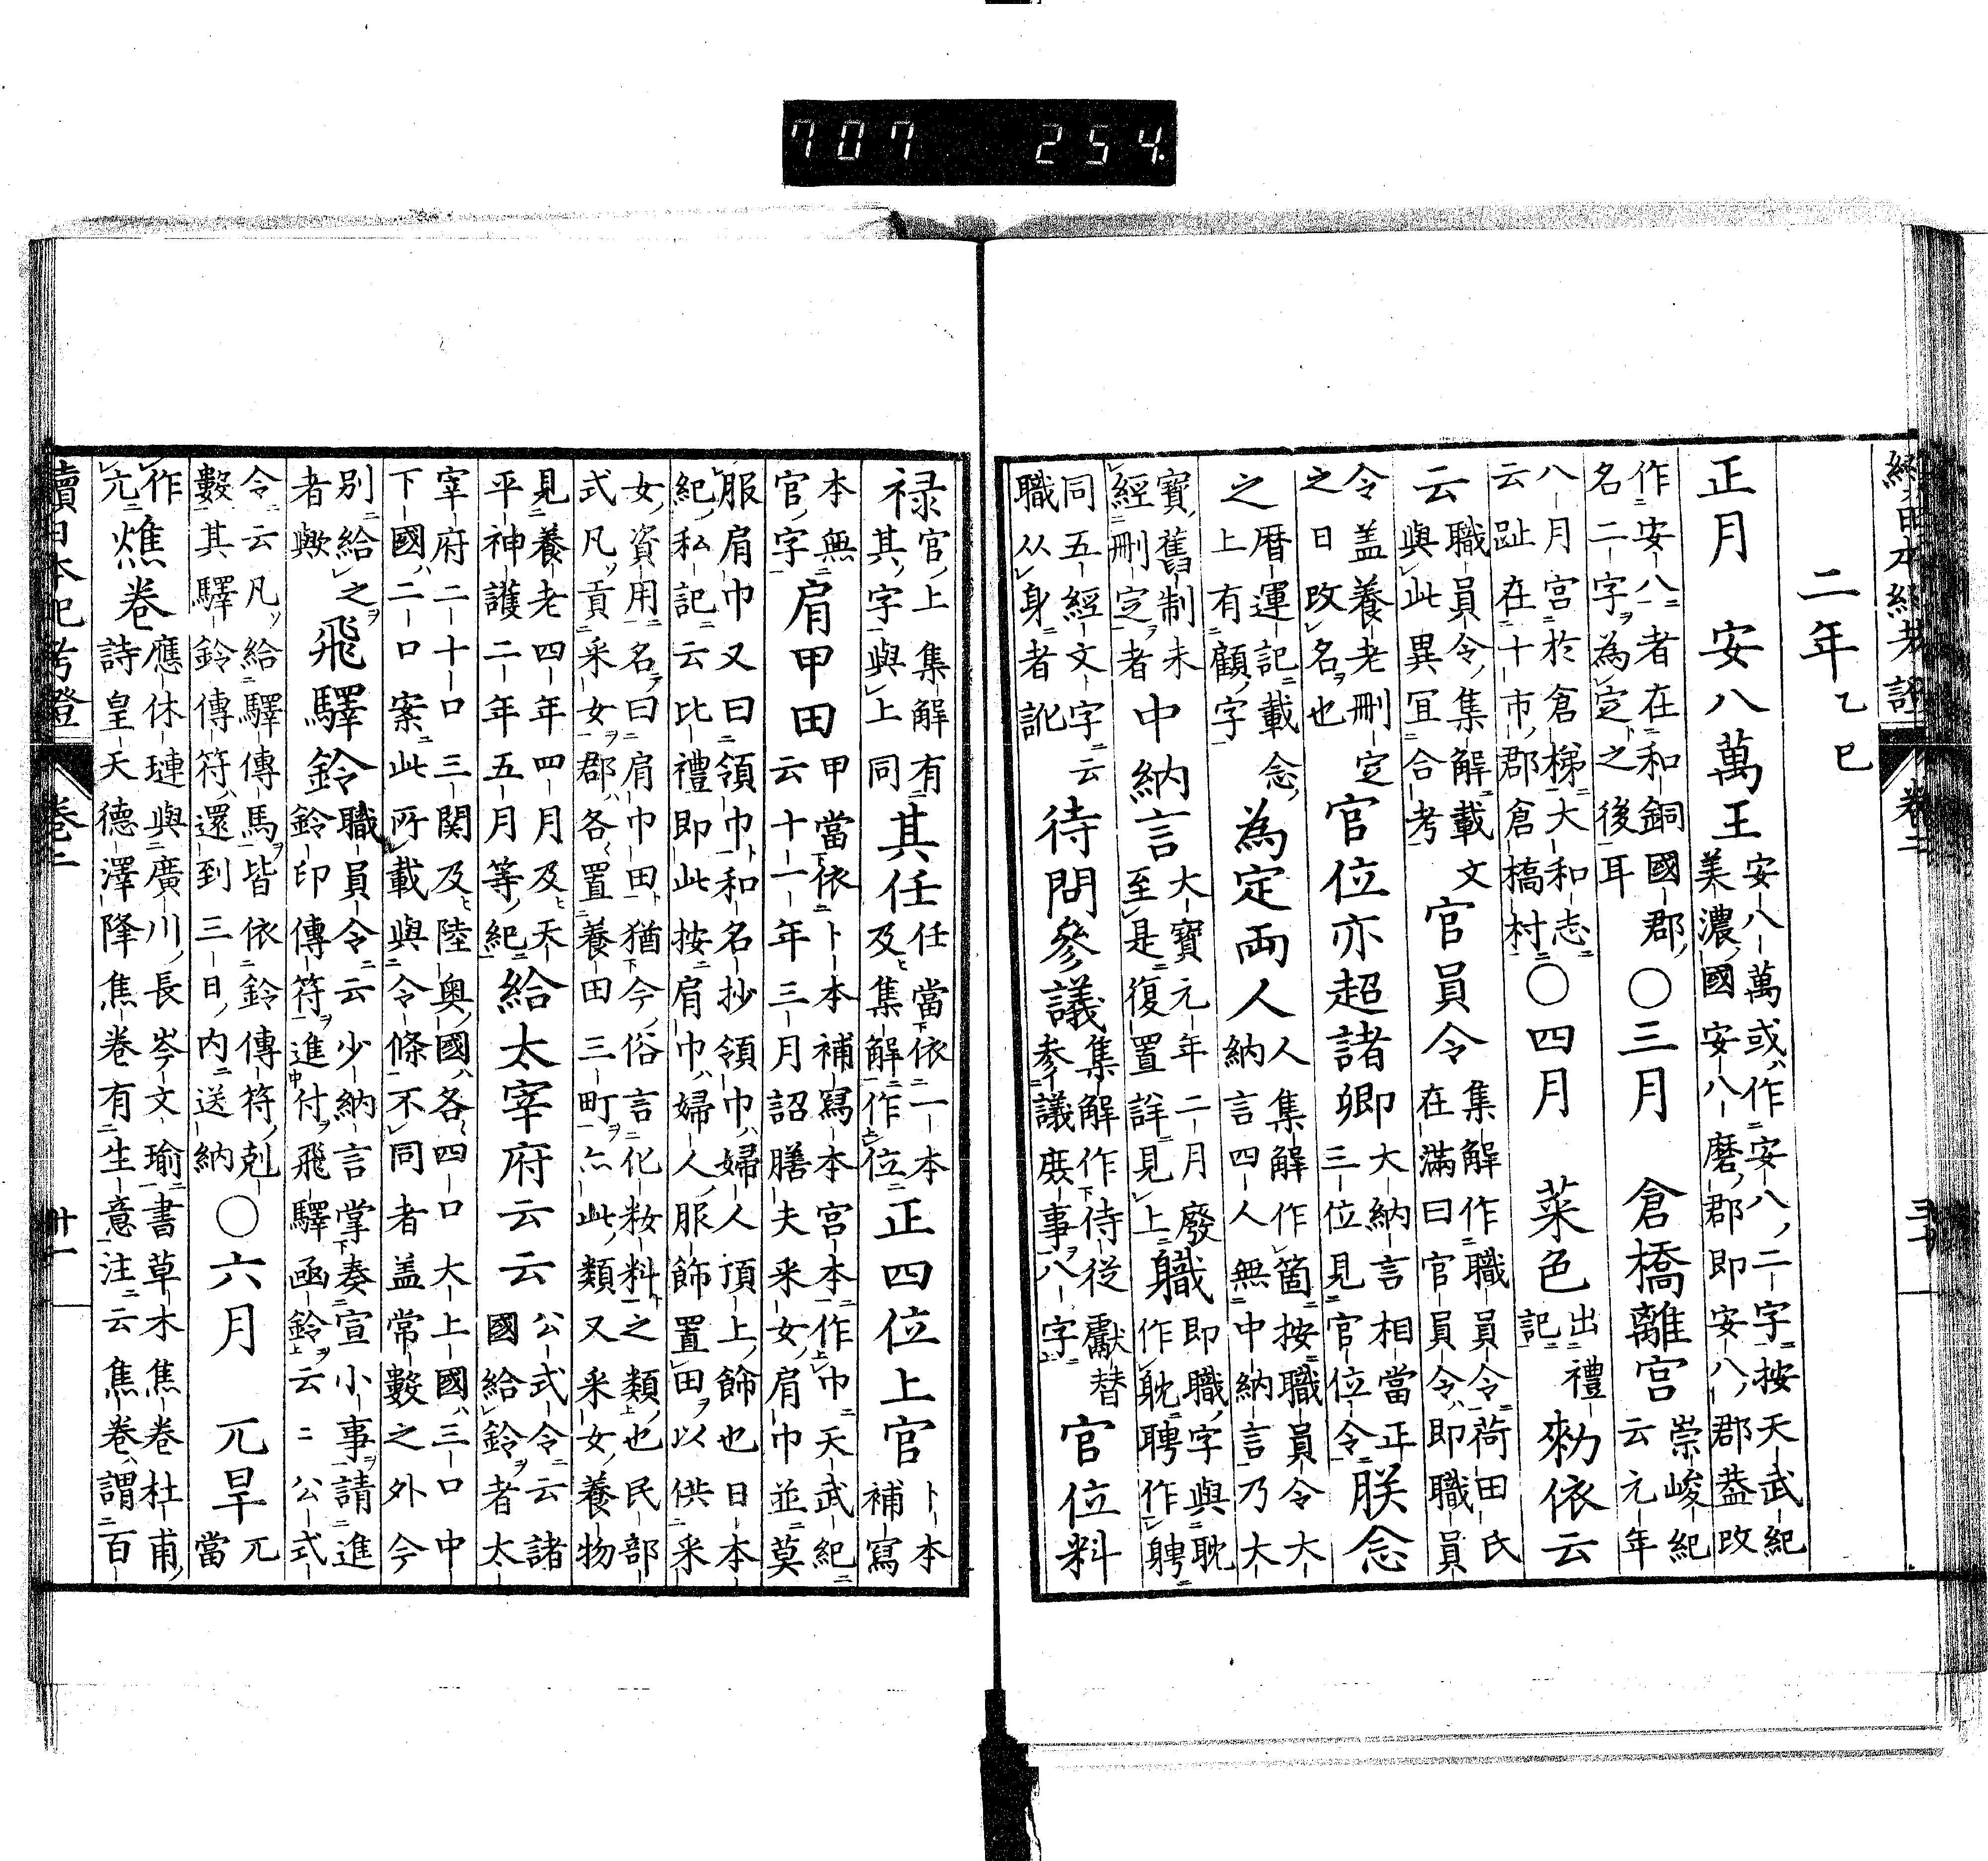 707 254.
續日本紀考證 卷二
二年乙巳
正月 安八萬王安八萬或作安八二字按天武紀
美濃國安八磨郡即安八郡盖改
作安八者在和銅國郡
名二字為定之後耳○三月 倉橋離宮崇峻紀
云元年
八月宮於倉梯大和志
云趾在十市郡倉橋村○四月 菜色出禮
記 勑依云
云職員令集解載文
與此異宜合考 官員令集解作職員令荷田氏
在滿曰官員令即職員
令盖養老刪定
之日改名也 官位亦超諸卿即大納言相當正
三位見官位令 朕念
之曆運記載念
上有顧字 為定兩人人集解作箇按職員令大
納言四人無中納言乃大
寶舊制未
經刪定者 中納言大寶元年二月廢
至是復置詳見上 職即職字與耽
作耽聘作聘
同五經文字云
職从身者訛 待問參議集解作侍從獻替
參議庶事八字 官位料
禄官上集解有
其字與上同 其任任當依一本
及集解作位 正四位上官卜本
補寫
本無
官字 肩甲田甲當依卜本補寫本宮本作巾天武紀
云十一年三月詔膳夫釆女肩巾並莫
服肩巾又曰領巾和名抄領巾婦人頂上飾也日本
紀私記云比禮即此按肩巾婦人服飾置田以供釆
女資用名曰肩巾田猶今俗言化粧料之類也民部
式凡貢釆女郡各置養田三町亦此類又釆女養物
見養老四年四月及天
平神護二年五月等紀 給太宰府云云公式令云諸
國給鈴者太
宰府二十口三関及陸奥國各四口大上國三口中
下國二口案此所載與令條不同者盖常數之外今
別給之
者歟 飛驛鈴職員令云少納言掌奏宣小事請進
鈴印傳符進付飛驛函鈴云々公式
令云凡給驛傳馬皆依鈴傳符剋
數其驛鈴傳符還到三日內送納○六月 亢旱亢
當
作
亢 燋卷應休璉與廣川長岑文瑜書草木焦卷杜甫
詩皇天德澤降焦卷有生意注云焦卷謂百
續日本紀考證 卷二 廿一